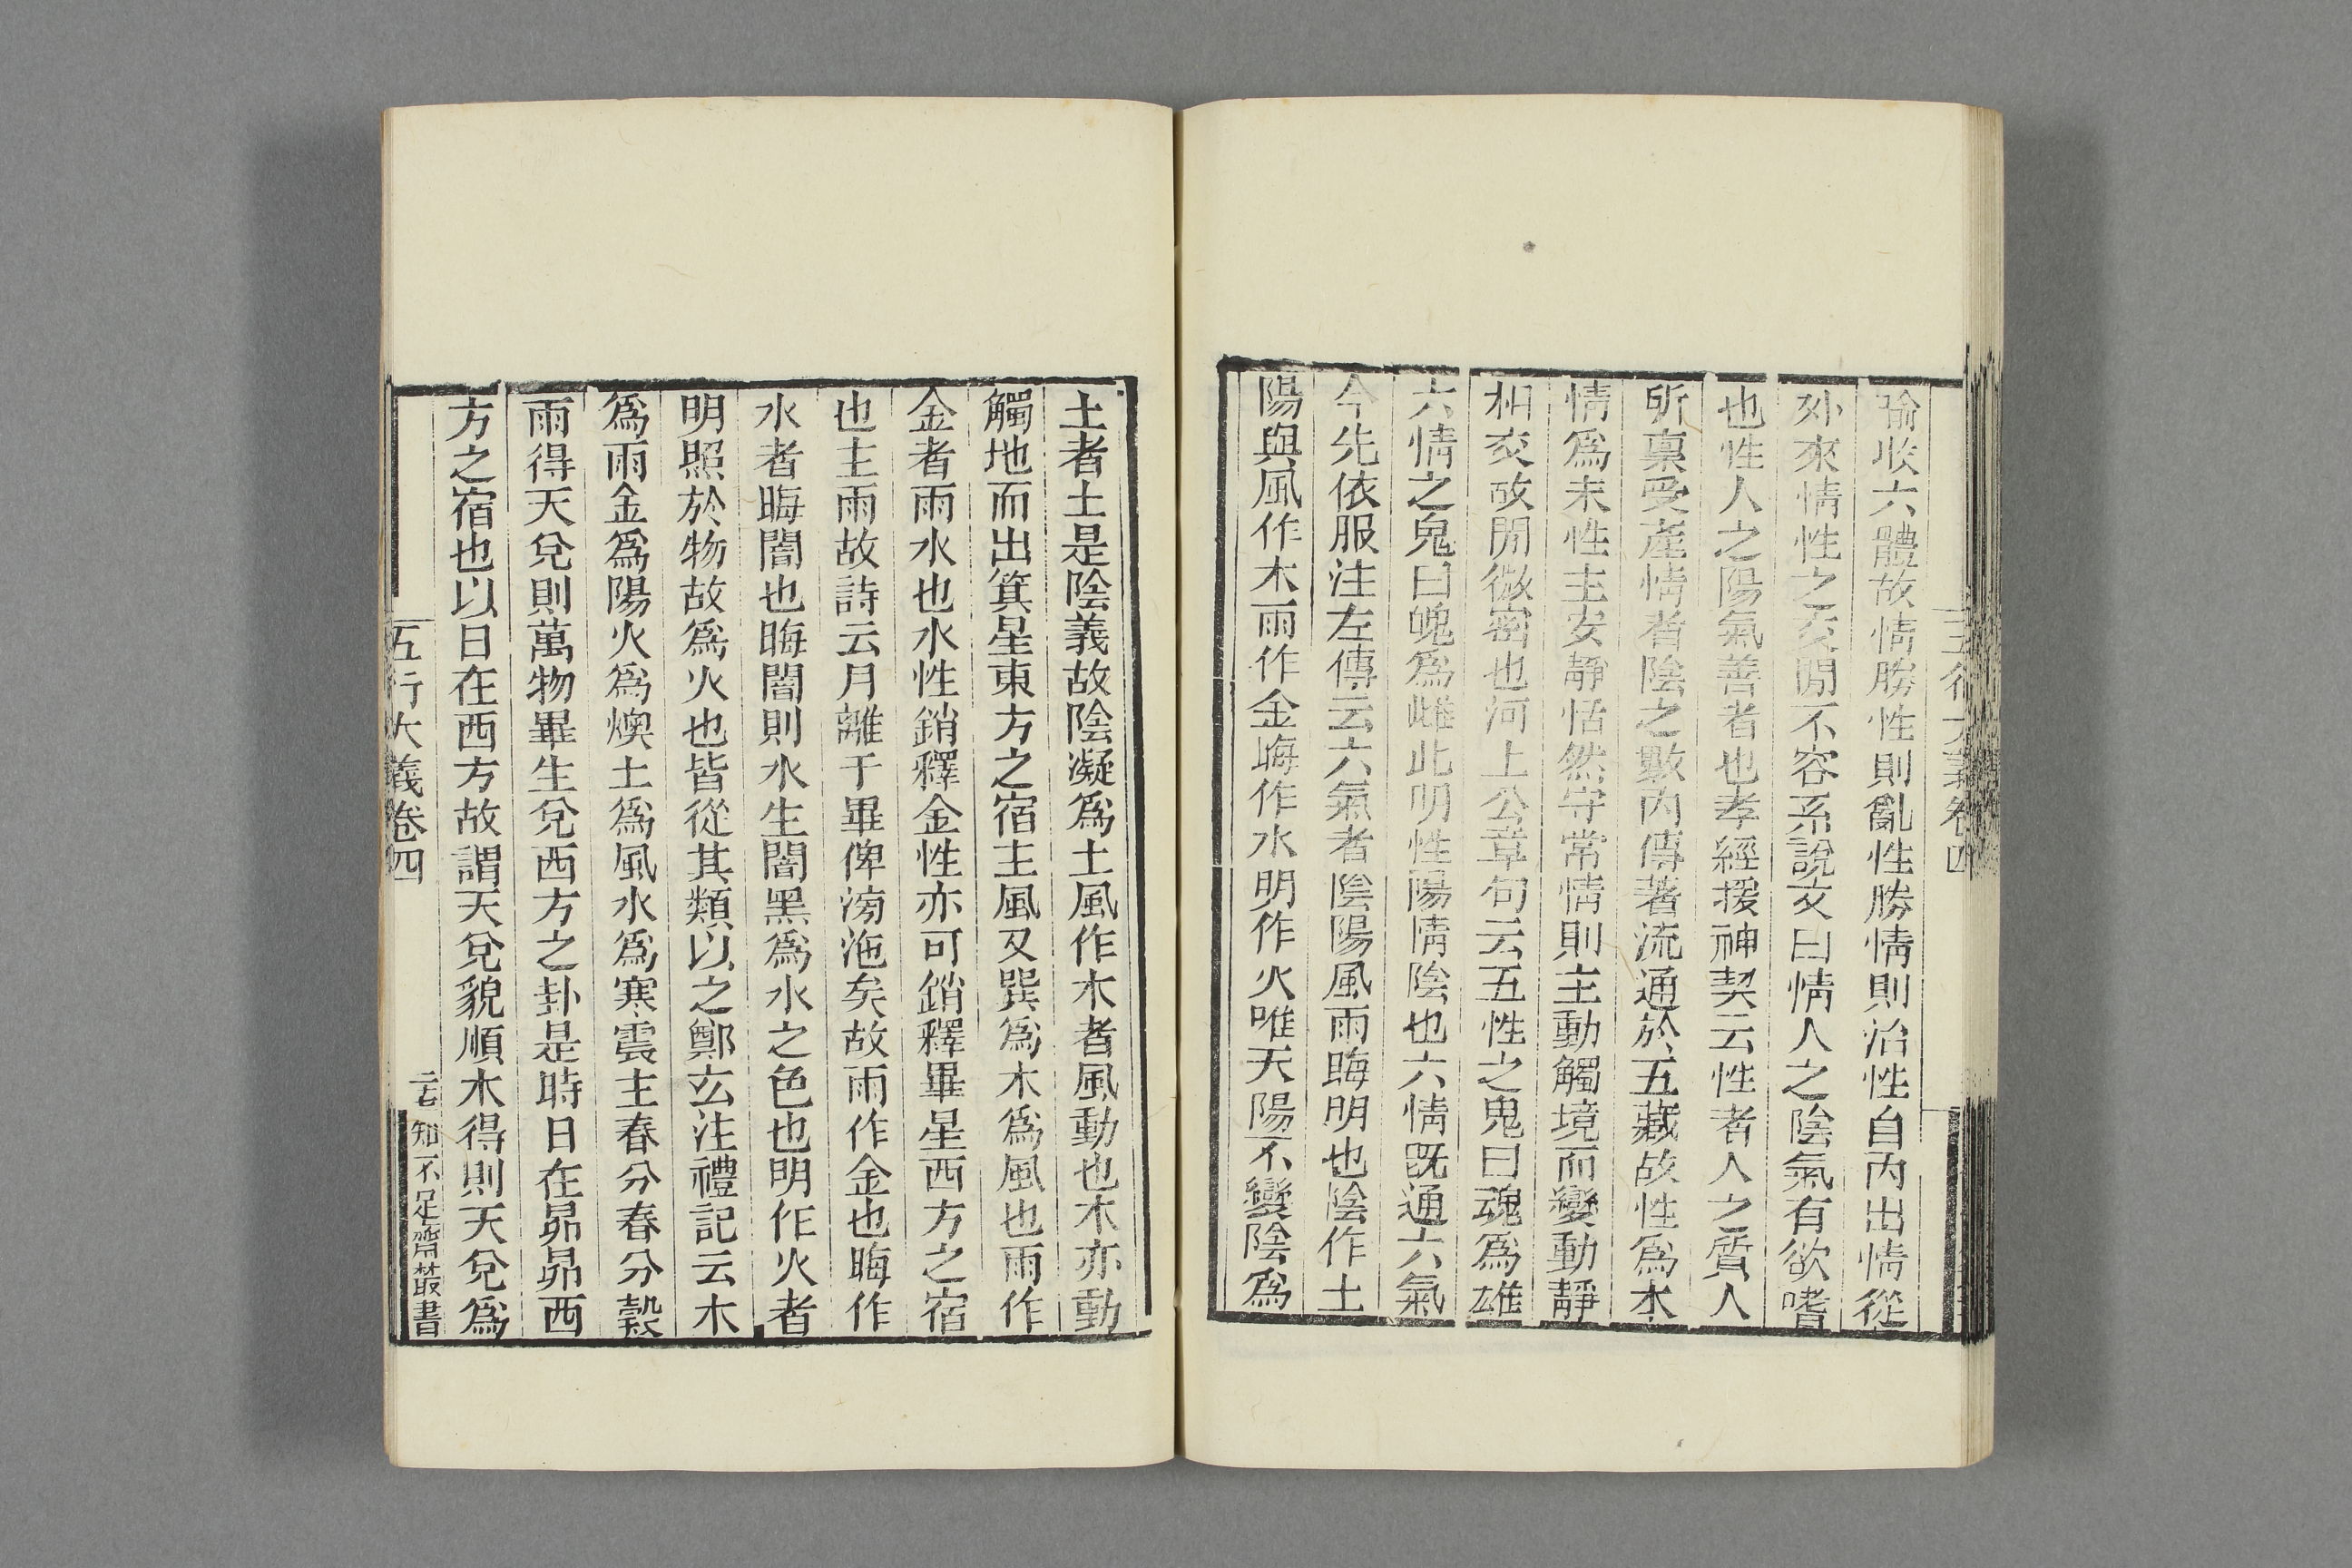 喻收六體故情勝性則亂性勝情則治性自內出情從
外來情性之交閒不容系說文曰情人之陰氣有欲嗜
也性人之陽氣善者也孝經援神契云性者人之質人
所稟受產情者陰之數內傳著流通於五藏故性爲本
情爲末性主安靜恬然守常情則主動觸境而變動靜
相交故閒微密也河上公章句云五性之鬼曰魂爲雄
六情之鬼曰魄爲雌此明性陽情陰也六情旣通六氣
今先依服注左傳云六氣者陰陽風雨晦明也陰作土
陽與風作木雨作金晦作水明作火唯天陽不變陰爲
五行大義卷四
土者土是陰義故陰凝爲土風作木者風動也木亦動
觸地而出箕星東方之宿主風又巽爲木爲風也雨作
金者雨水也水性銷釋金性亦可銷釋畢星西方之宿
也主雨故詩云月離于畢俾滂沲矣故雨作金也晦作
水者晦闇也晦闇則水生闇黑爲水之色也明作火者
明照於物故爲火也皆從其類以之鄭玄注禮記云木
爲雨金爲陽火爲燠土爲風水爲寒震主春分春分穀
雨得天兌則萬物畢生兌西方之卦是時日在昴昴西
方之宿也以日在西方故謂天兌貌順木得則天兌爲
五行大義卷四
知不足齋叢書